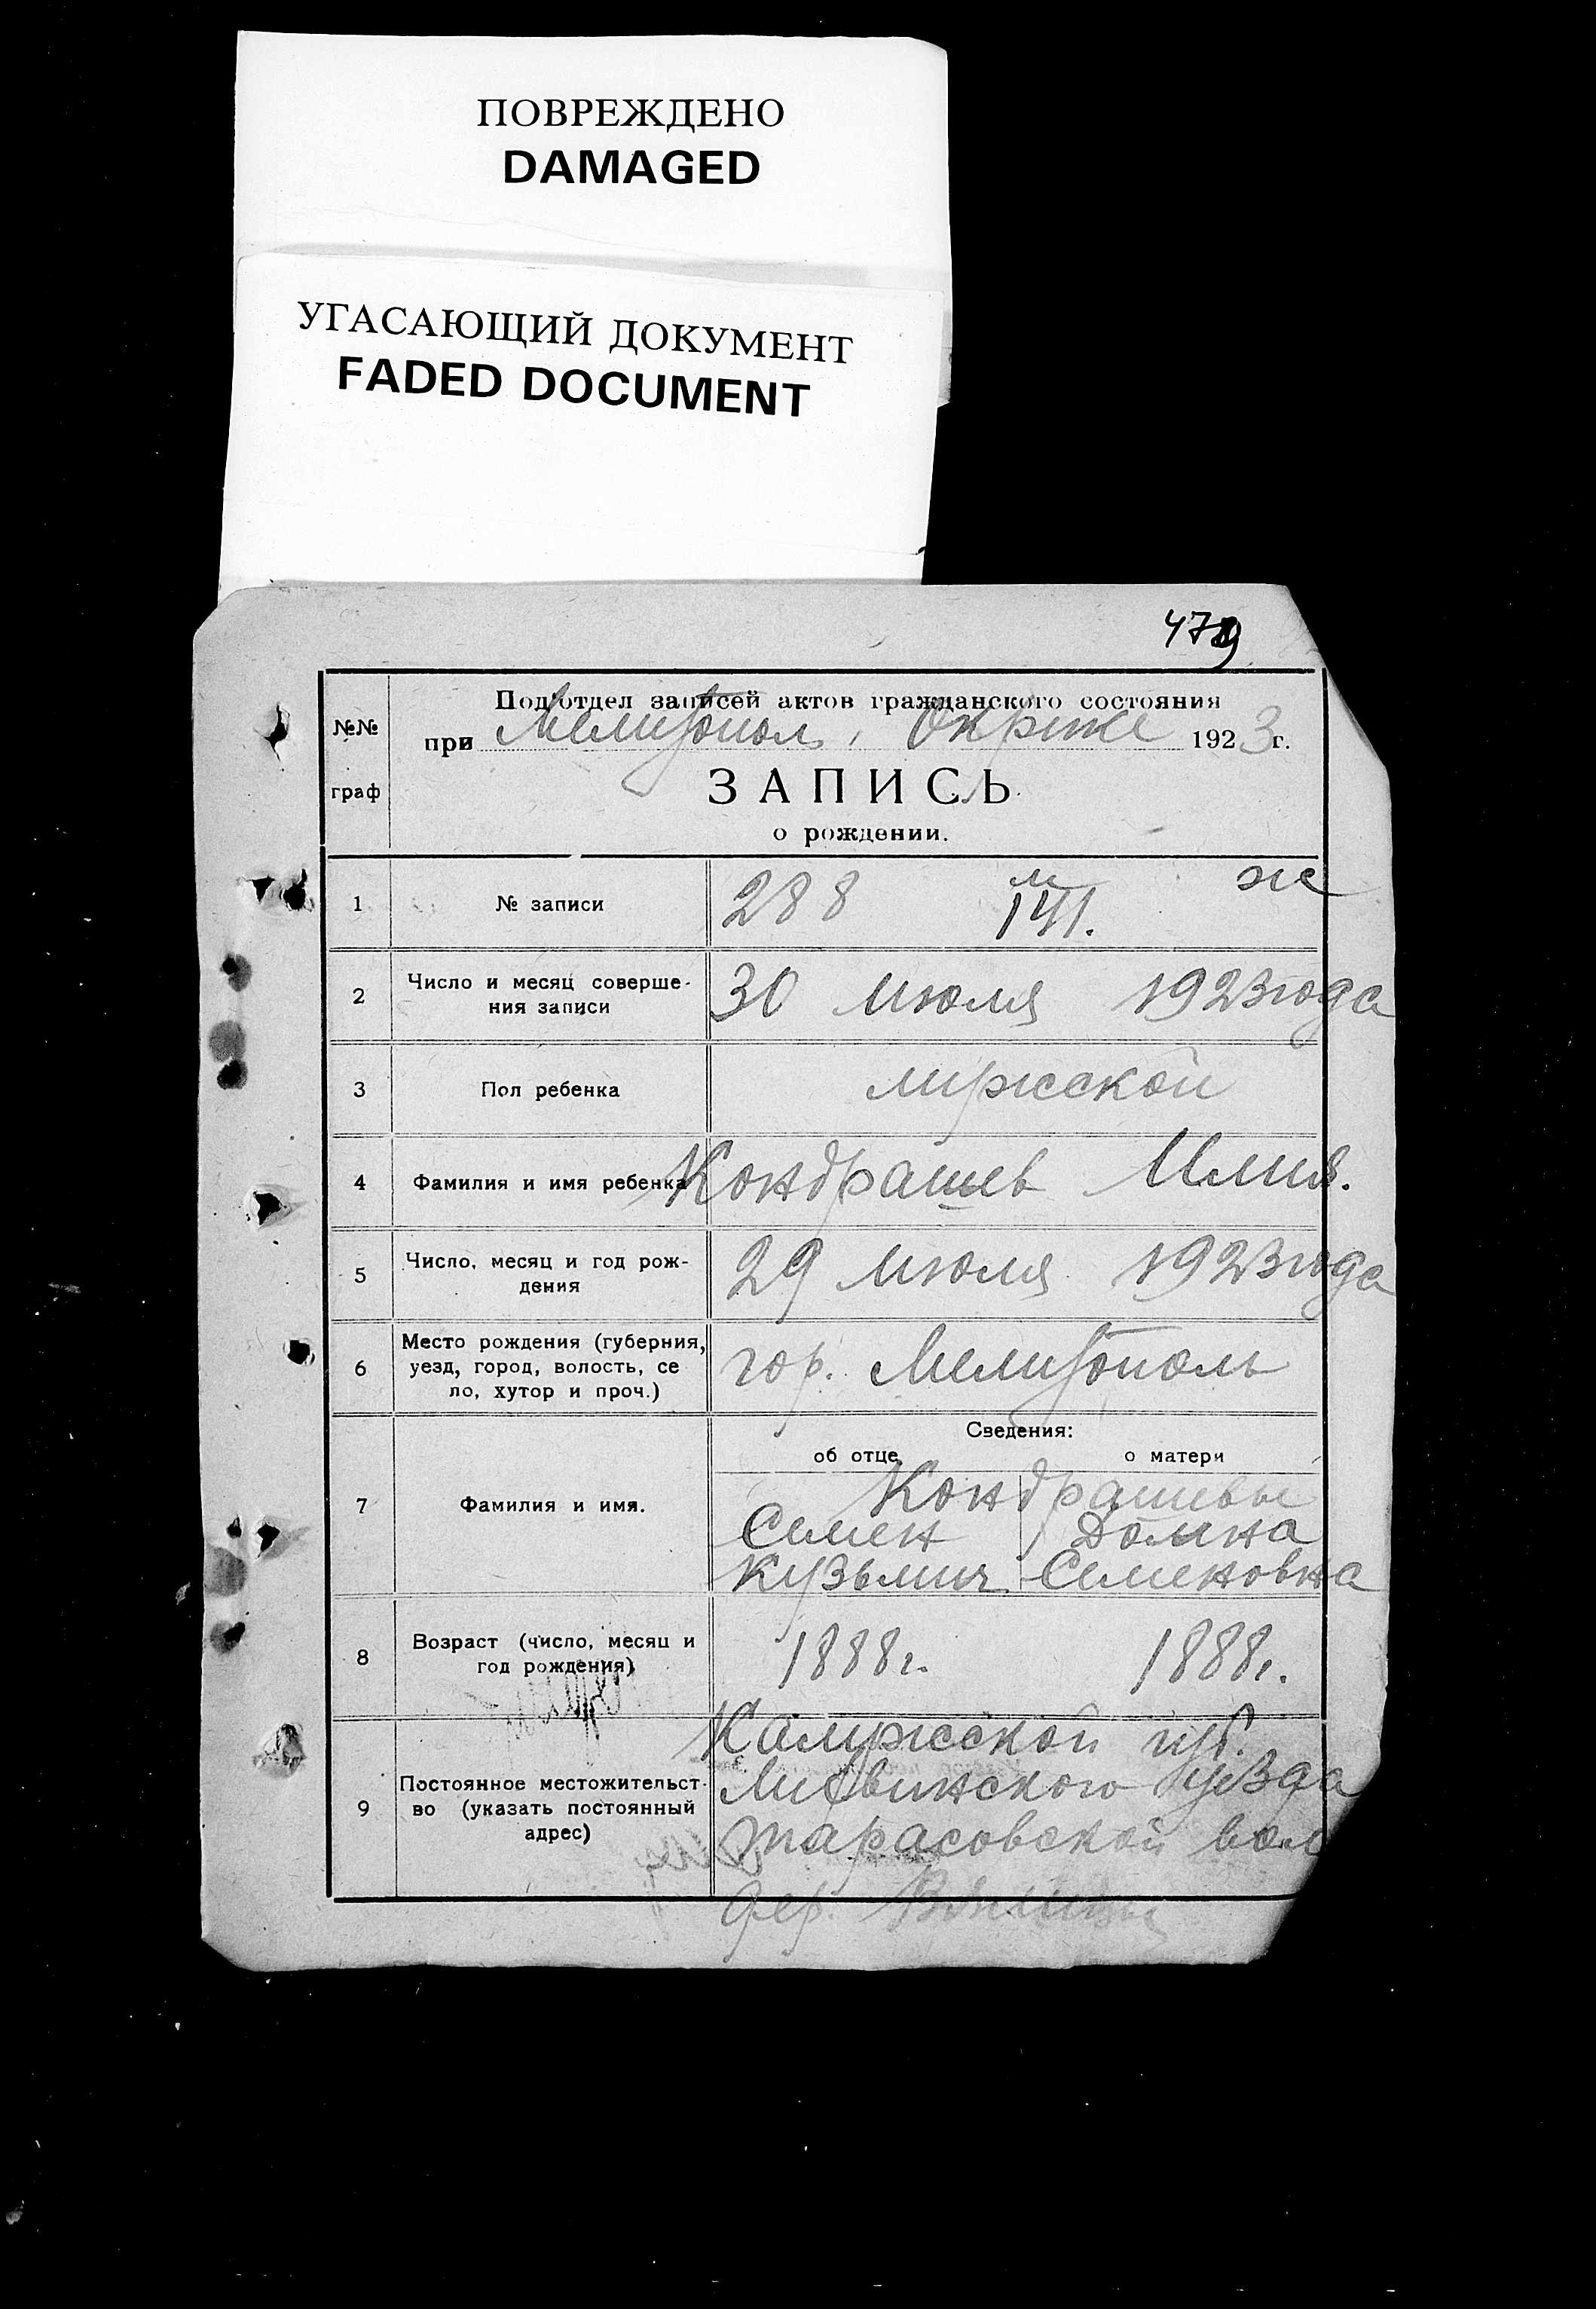 ПОВРЕЖДЕНО
DAMAGED
УГАСАЮЩИЙ ДОКУМЕНТ
FADED DOCUMENT
479
№№ граф
Подотдел записей актов гражданского состояния
при Мелитопол. 1923 г.
ЗАПИСЬ
о рождении.
1 № записи 288 м 141. ж
2 Число и месяц соверше-
ния записи 30 Июля 1923 года
3 Пол ребенка мужской
4 Фамилия и имя ребенка Кондрашев Илия.
5 Число, месяц и год рож-
дения 29 Июля 1923 года
6 Место рождения (губерния,
уезд, город, волость, се
ло, хутор и проч.) гор. Мелитополь
Сведения:
об отце о матери
7 Фамилия и имя. Кондрашевы
Семен Домна
Кузьмич Семеновна
8 Возраст (число, месяц и
год рождения) 1888 г. 1888 г.
9 Постоянное местожительст-
во (указать постоянный
адрес) Калужской губ.
Лихвинского уезда
Тарасовской вол
дер.